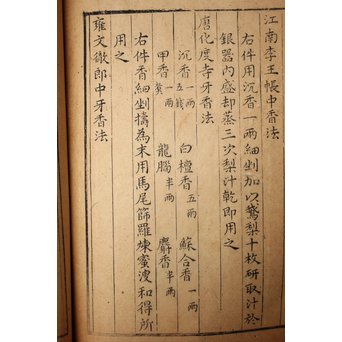 江南李王帳中香法
右件用沉香一兩細剉加以鵞梨十枚研取汁於
銀器内盛却蒸三次梨汁乾即用之
唐化度寺牙香法
沉香一兩五錢 白檀香五兩 蘇合香一兩
甲香一兩煑 龍腦半兩 麝香半兩
右件香細剉擣為末用馬尾篩羅煉蜜溲和得所
用之
雍文徹郎中牙香法